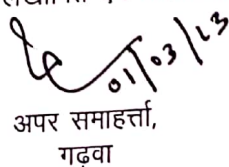 01/03/13
अपर समाहर्त्ता,
गढ़वा